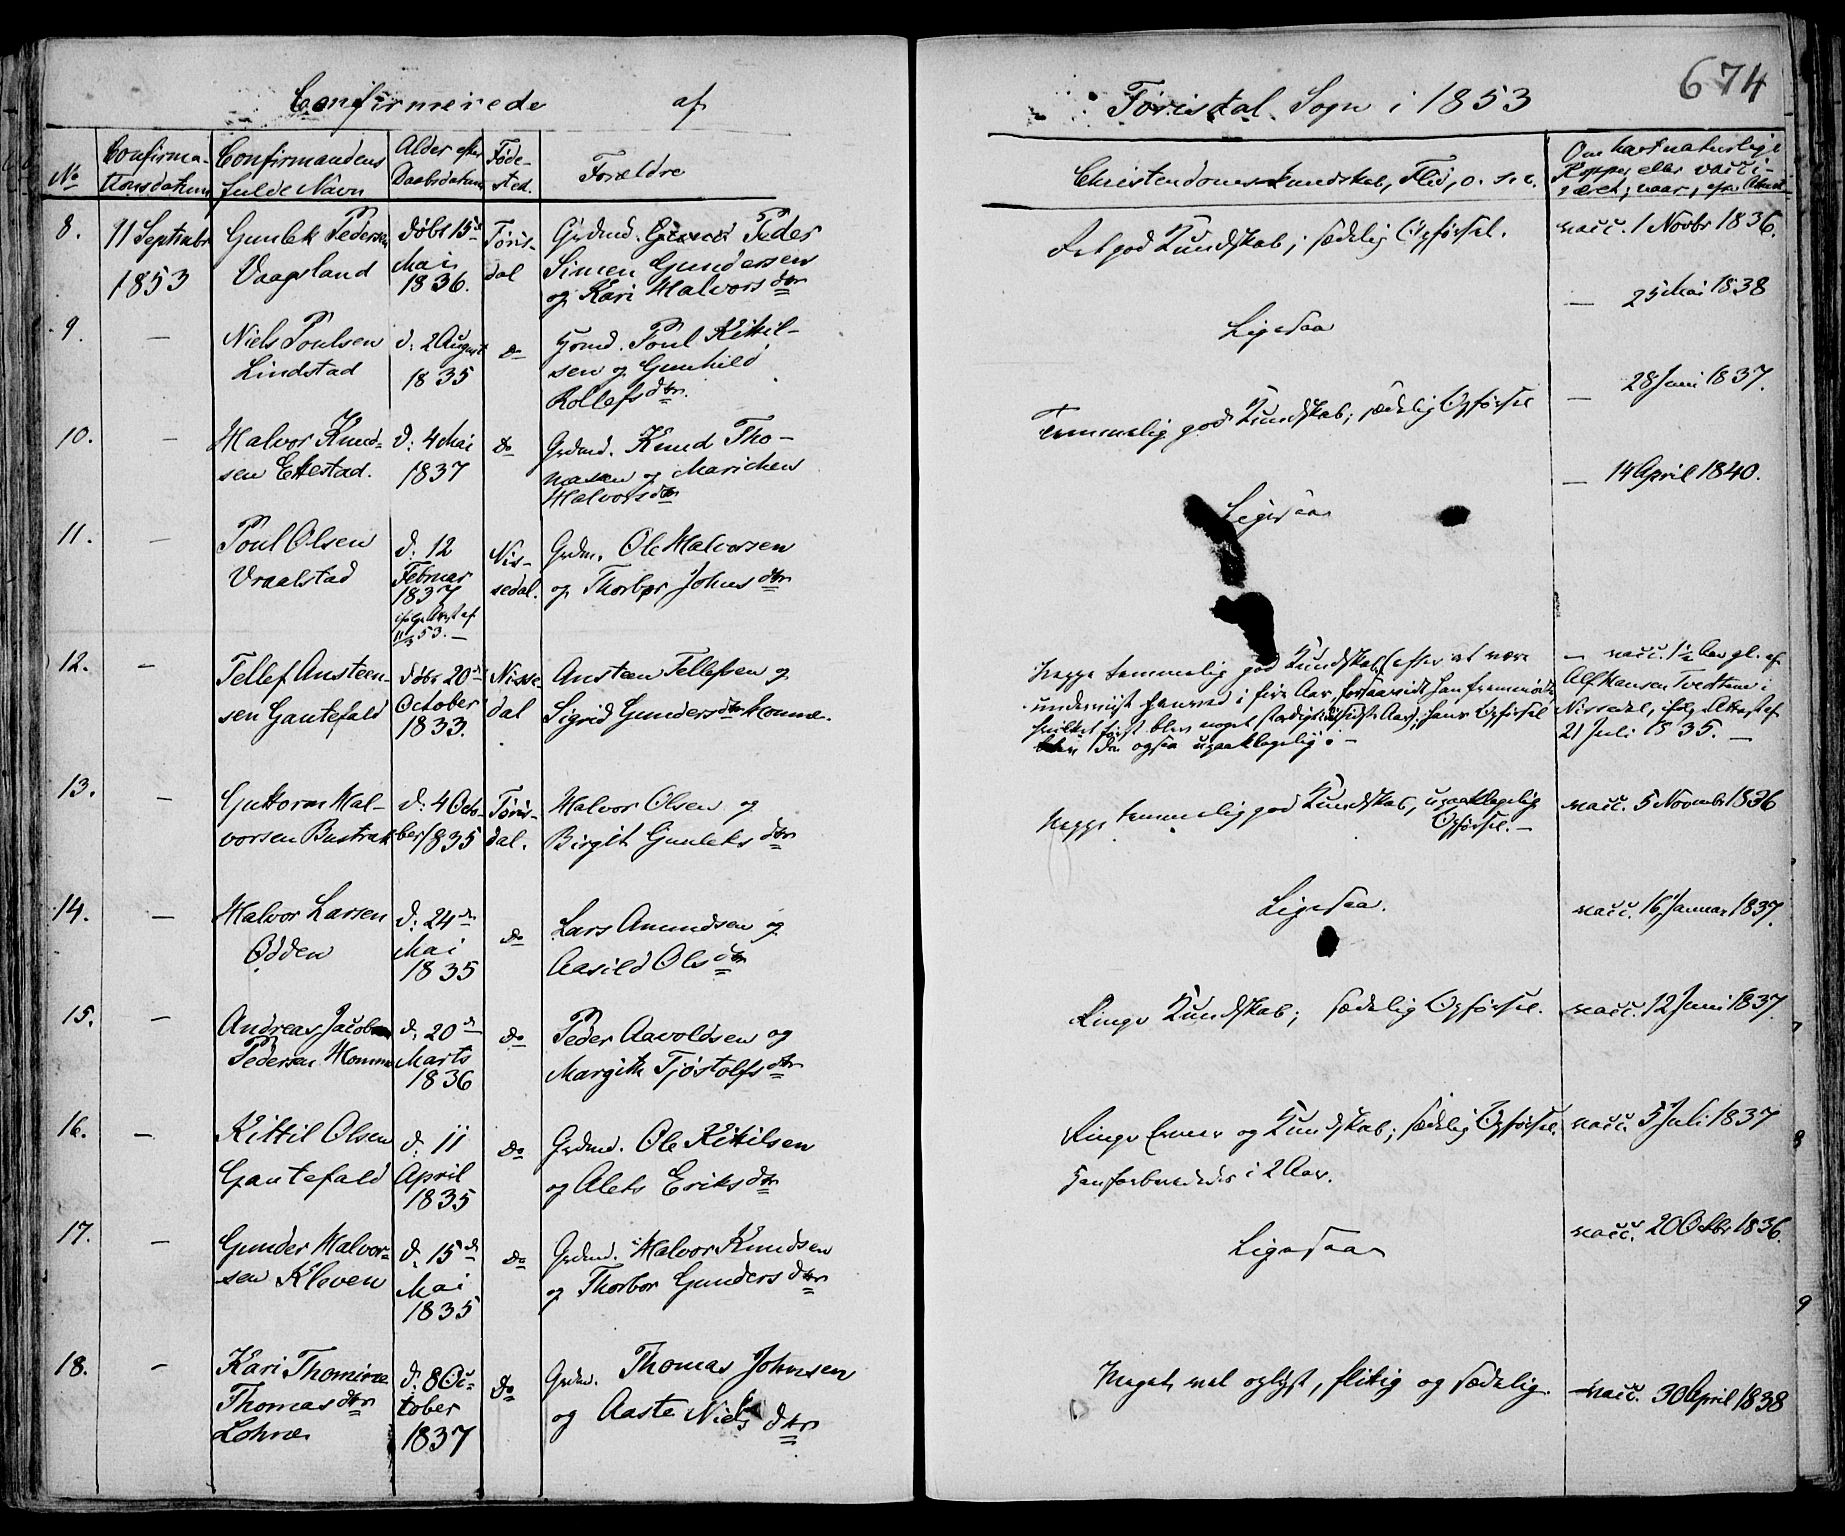 674
Confirmerede af
Torisdal Sogn i 1853
No
Confirma-
tionsdatum
Confirmandens
fulde Navn
Alder efter
Daabsdatum
Føde-
sted.
Forældre
Christendoms Kundskab, Flid, o. s. v.
Om havt naturlige
Kopper, eller vacci-
neret; naar, efter Attest
8.
11 Septembr
1853
Gunlek Pedersen
Vaagsland
døbt 15de
Mai
1836.
Töris-
dal
Grdmd. Peder
Simen Gundersen
og Kari Halvorsdtr
Ret god Kundskab; sædelig Opførsel.
vacc. 1 Novbr 1836.
9.
—
Niels Poulsen
Lindstad
d: 2 August
1835
do
Grmd. Poul Kittil-
sen og Gunhild
Rollefsdtr.
Ligesaa
— 25 Mai 1838
10.
—
Halvor Knud-
sen Ettestad.
d: 4 Mai
1837
do
Grdmd. Knud Tho-
masen og Marichen
Halvorsdtr
Temmelig god Kundskab; sædelig Opførsel
— 28 Juni 1837.
11.
—
Poul Olsen
Vraalstad
d: 12
Februar
1837
ifølge Attest af
53. —
Nis-
sedal.
Grdm. Ole Halvorsen
og Thorber Johnsdtr
Ligesaa
— 14 April 1840.
12.
—
Tellef Ansteen-
sen Gautefald
døbt 20de
October
1833.
Nisse-
dal
Ansteen Tellefsen og
Sigrid Gundersdtr Homme.
Neppe temmelig god Kundskab (efter at være
underviist i fire Aar, forsaavidt han fremmødte
hvilket først blev noget stadigt i sidste Aar); hans Opførsel
da ogsaa upaaklagelig. —
— vacc. 1½ Aar gl. af
Alf Hansen Tvedtene i
Nissedal, ifølg. Attest af
21 Juli 1835. —
13.
—
Guttorm Hal-
vorsen Bustrak
d: 4 Octo-
ber 1835
Töris-
dal.
Halvor Olsen og
Birgit Gunleksdtr
Neppe temmelig god Kundskab, upaaklagelig
Opførsel. —
vacc. 5 Novembr 1836
14.
—
Halvor Larsen
Ødden
d: 24de
Mai
1835
do
Lars Amundsen og
Aasild Olsdtr
Ligesaa.
vacc. 16 Januar 1837.
15.
—
Andreas Jacob
Pedersen Homme
d: 20de
Marts
1836
do
Peder Aavoldsen og
Margith Tjöstolfsdtr
Ringe Kundskab; sædelig Opførsel.
vacc. 12 Juni 1837.
16.
—
Kittil Olsen
Gautefald
d: 11
April
1835
do
Grdmd. Ole Kittilsen
og Alets Eriksdtr
Ringe Evner og Kundskab; sædelig Opførsel.
Han forberededes i 2 Aar.
vacc. 5 Juli 1837
17.
—
Gunder Halvor-
sen Kleven
d. 15de
Mai
1835
do
Grdmd. Halvor Knudsen
og Thorbor Gundersdtr
Ligesaa
vacc. 20 Octbr 1836.
18.
—
Kari Thomine
Thomasdtr
Lohne
d: 8 Oc-
tober
1837
do
Grdm. Thomas Johnsen
og Aaste Nielsdtr
Meget vel oplyst, flittig og sædelig.
vacc. 30 April 1838